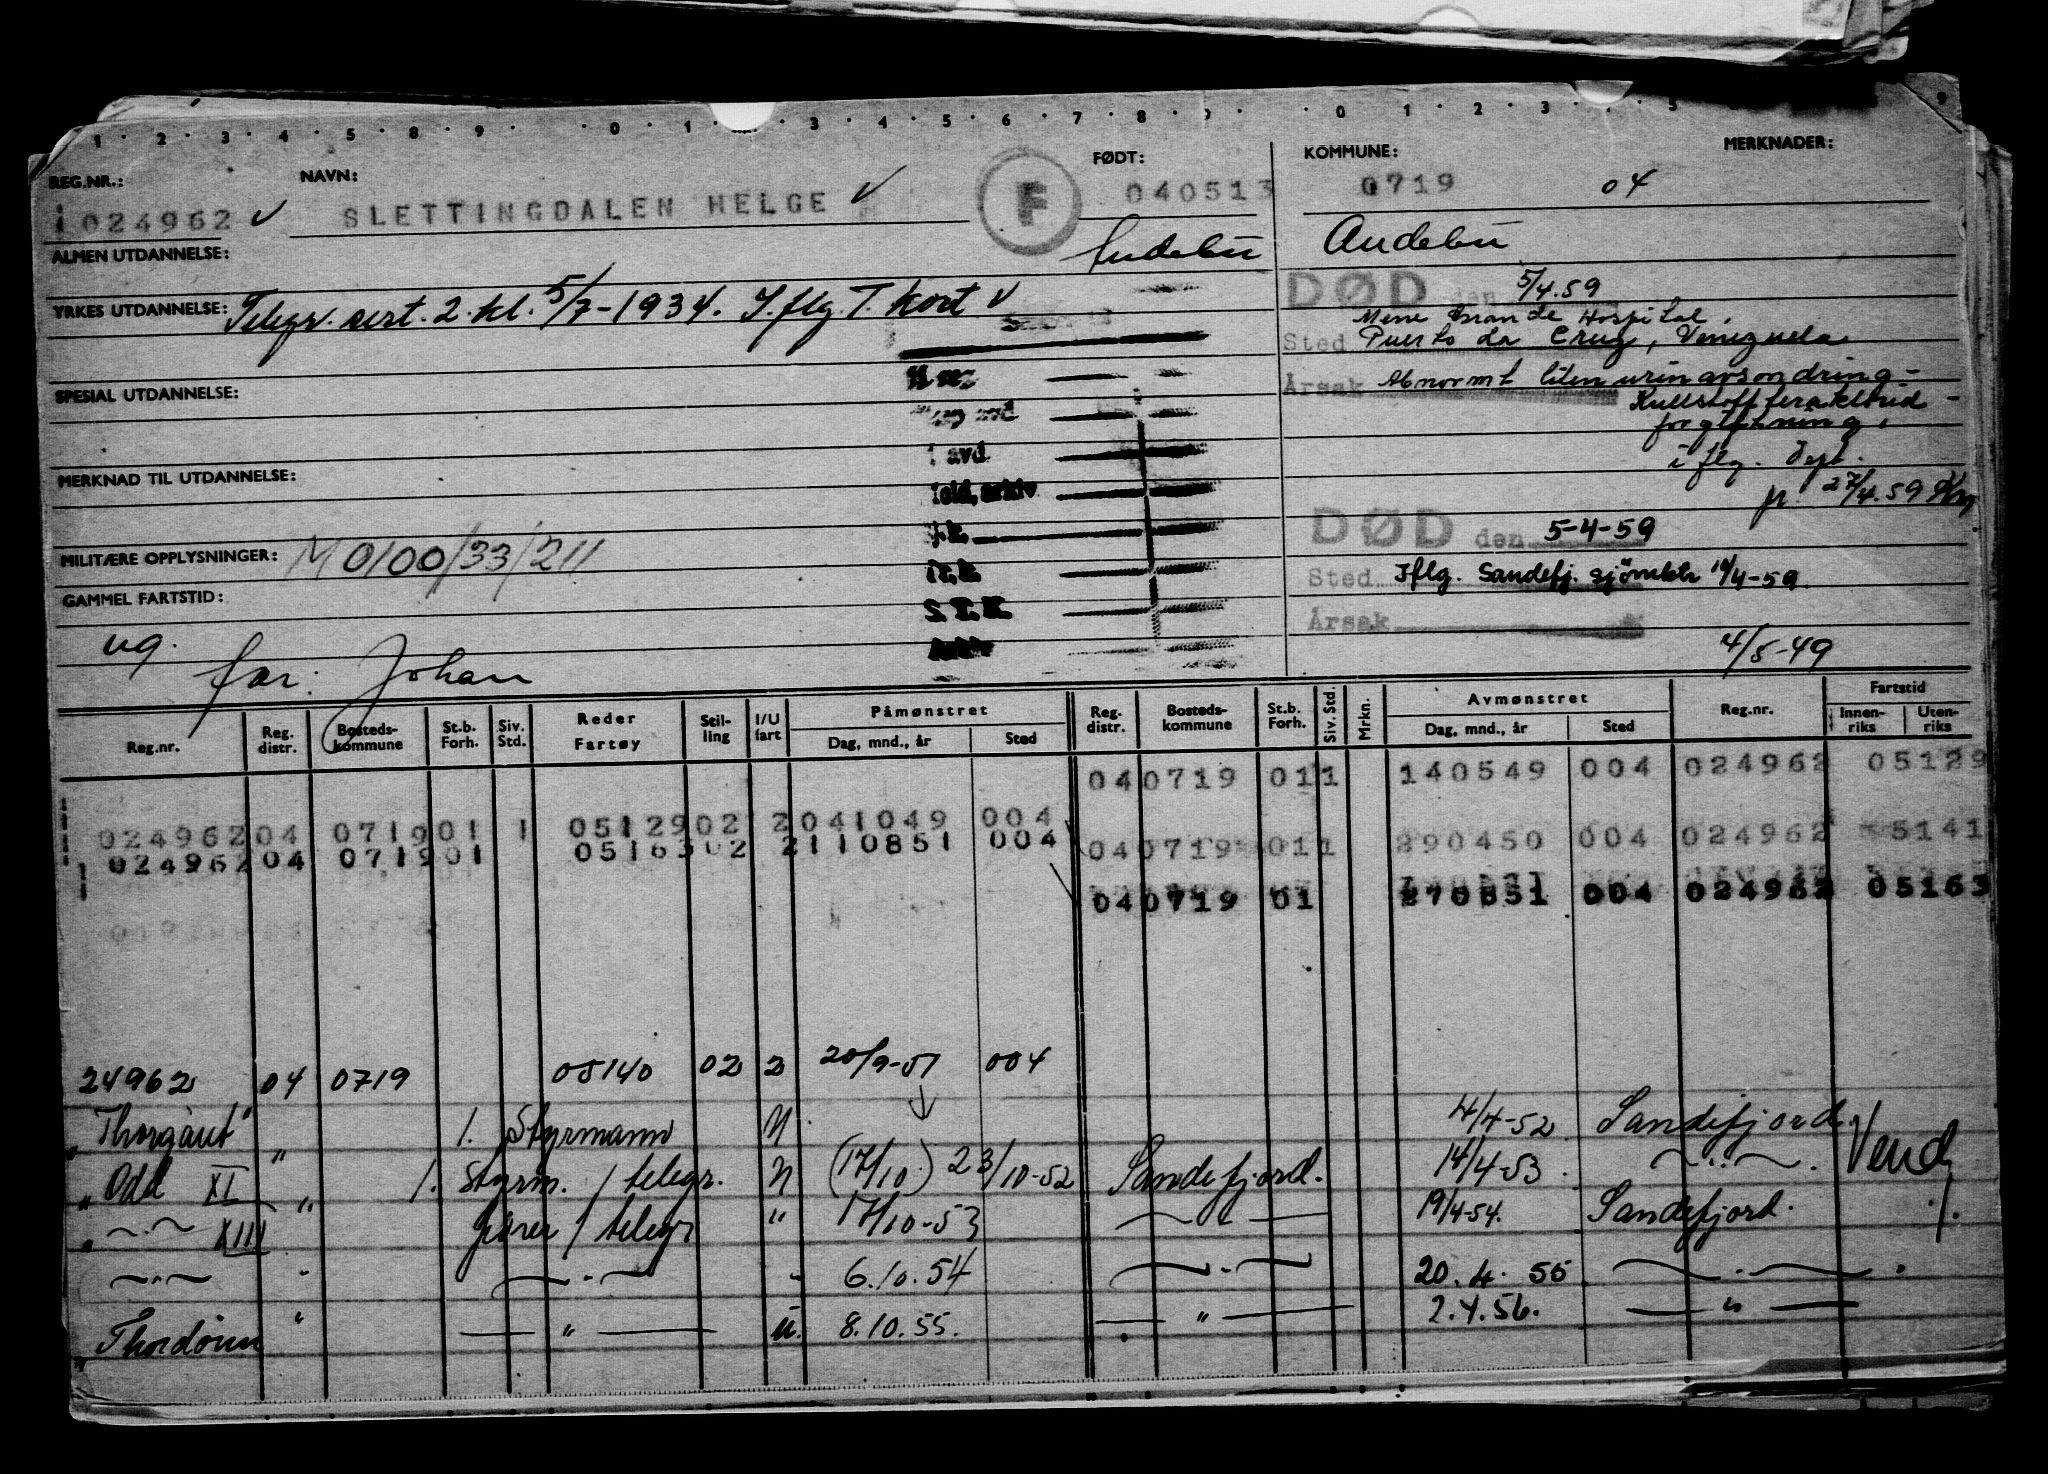 1 · 2 · 3 · 4 · 5 · 8 · 9 · · 0 · 1 · 3 · 4 · 5 · 6 · 7 · 8 · · 0 · 1 · 2 · 3 · 5 9
REG.NR.: NAVN: FØDT: KOMMUNE: MERKNADER:
024962 SLETTINGDALEN HELGE F 040513 0719 04
ALMEN UTDANNELSE: Andebu Andebu
DØD den 5/4.59
YRKES UTDANNELSE: Telegr. sert. 2. kl. 5/7-1934. I. flg T. kort
Mene Grande Hospital,
Sted Puerto La Cruz, Venezuela
SPESIAL UTDANNELSE:
Årsak Abnormt liten urinavsondring -
Kullstofftetraklorid -
forgiftning,
avd.
MERKNAD TIL UTDANNELSE:
i flg. Dept.
feld, arkiv
jr. 27/4.59
DØD den 5-4-59
MILITÆRE OPPLYSNINGER: M 0100/33/211
Sted Iflg. Sandefj. sjömktr 14/4-59
GAMMEL FARTSTID: S.T.K.
Årsak
ug. 4/5-49
far: Johan
Reg.nr. Reg. distr. Bosteds- kommune St.b. Forh. Siv. Std. Reder Fartøy Stil- ling I/U fart Påmønstret Dag, mnd., år Sted Reg. distr. Bosteds- kommune St.b. Forh. Siv. Std. Mrkn. Avmønstret Dag, mnd., år Sted Reg.nr. Fartstid Innen- riks Uten- riks
04 0719 01 1 140549 004 024962 05129
024962 04 0719 01 1 05129 02 2 041049 004
04 0719 01 1 290450 004 024962 5141
024962 04 0719 01 05163 02 2 110851 004
04 0719 01 270851 004 024962 05163
24962 04 0719 05140 02 2 20/9-51 004
"Thorgaut" " 1. Styrmann U 4/4-52 Sandefjord.
"Odd XI " 1. Styrm. / telegr. N (17/10) 23/10-52 Sandefjord. 14/4-53 ~"~. Vend
" ~"~ XIII fører / telegr " 17/10-53 — " — 19/4-54. Sandefjord. ./.
~"~ " ~"~ " 6.10.54 ~"~ 20.4.55 ~"~
"Thordønn " — " — u. 8.10.55. — " — 2.4.56. — " —